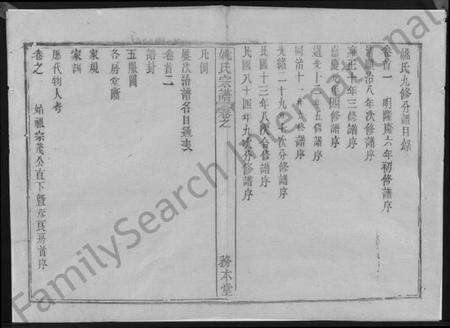 姚氏九修分譜目錄
卷首一　明隆慶六年初修譜序
順治八年次修譜序
雍正九年三修譜序
四修譜序
道光十　五修譜序
同治十　修譜序
光緒二十九年　次分修譜序
民國十三年八次合修譜序
民國八十四年九次分修譜序
姚氏宗譜　卷之
務本堂
凡例
屢次治譜名目總表
卷首二
誥封
五服圖
各房堂斷
家規
家訓
歷代物人考
卷之　始祖宗茂公直下暨彥良房首序
FamilySearch International